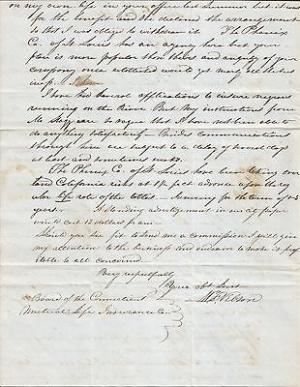 on my own life in your office last summer but it was
for the benefit and she declines the arrangement
so that I was obliged to withdraw it. The Phenix
Co. of St Louis has an agency here but your
plan is more popular than theirs and any of your
company once established would get many of the best
I have had several applications to insure negroes
running on the River. But my instructions from
are so vague that I have not been able to
do anything satisfactory. Besides communications
through him are subject to a delay of several days
at least and sometimes
The Phenix Co. of St Louis have been taking
land California risks at 1½ pct advance upon the reg
ular life rate of the tables - running for the term of
years. A standing advertisement in our city paper
will cost 12 dollars pr an.
Should you see fit to send me a commission I will give
my attention to the business and endeavor to make it prof
itable to all concerned
Very respectfully
Your Obt Servt
Wilson
Board of the Connecticut
Mutual Life Insurance Co.